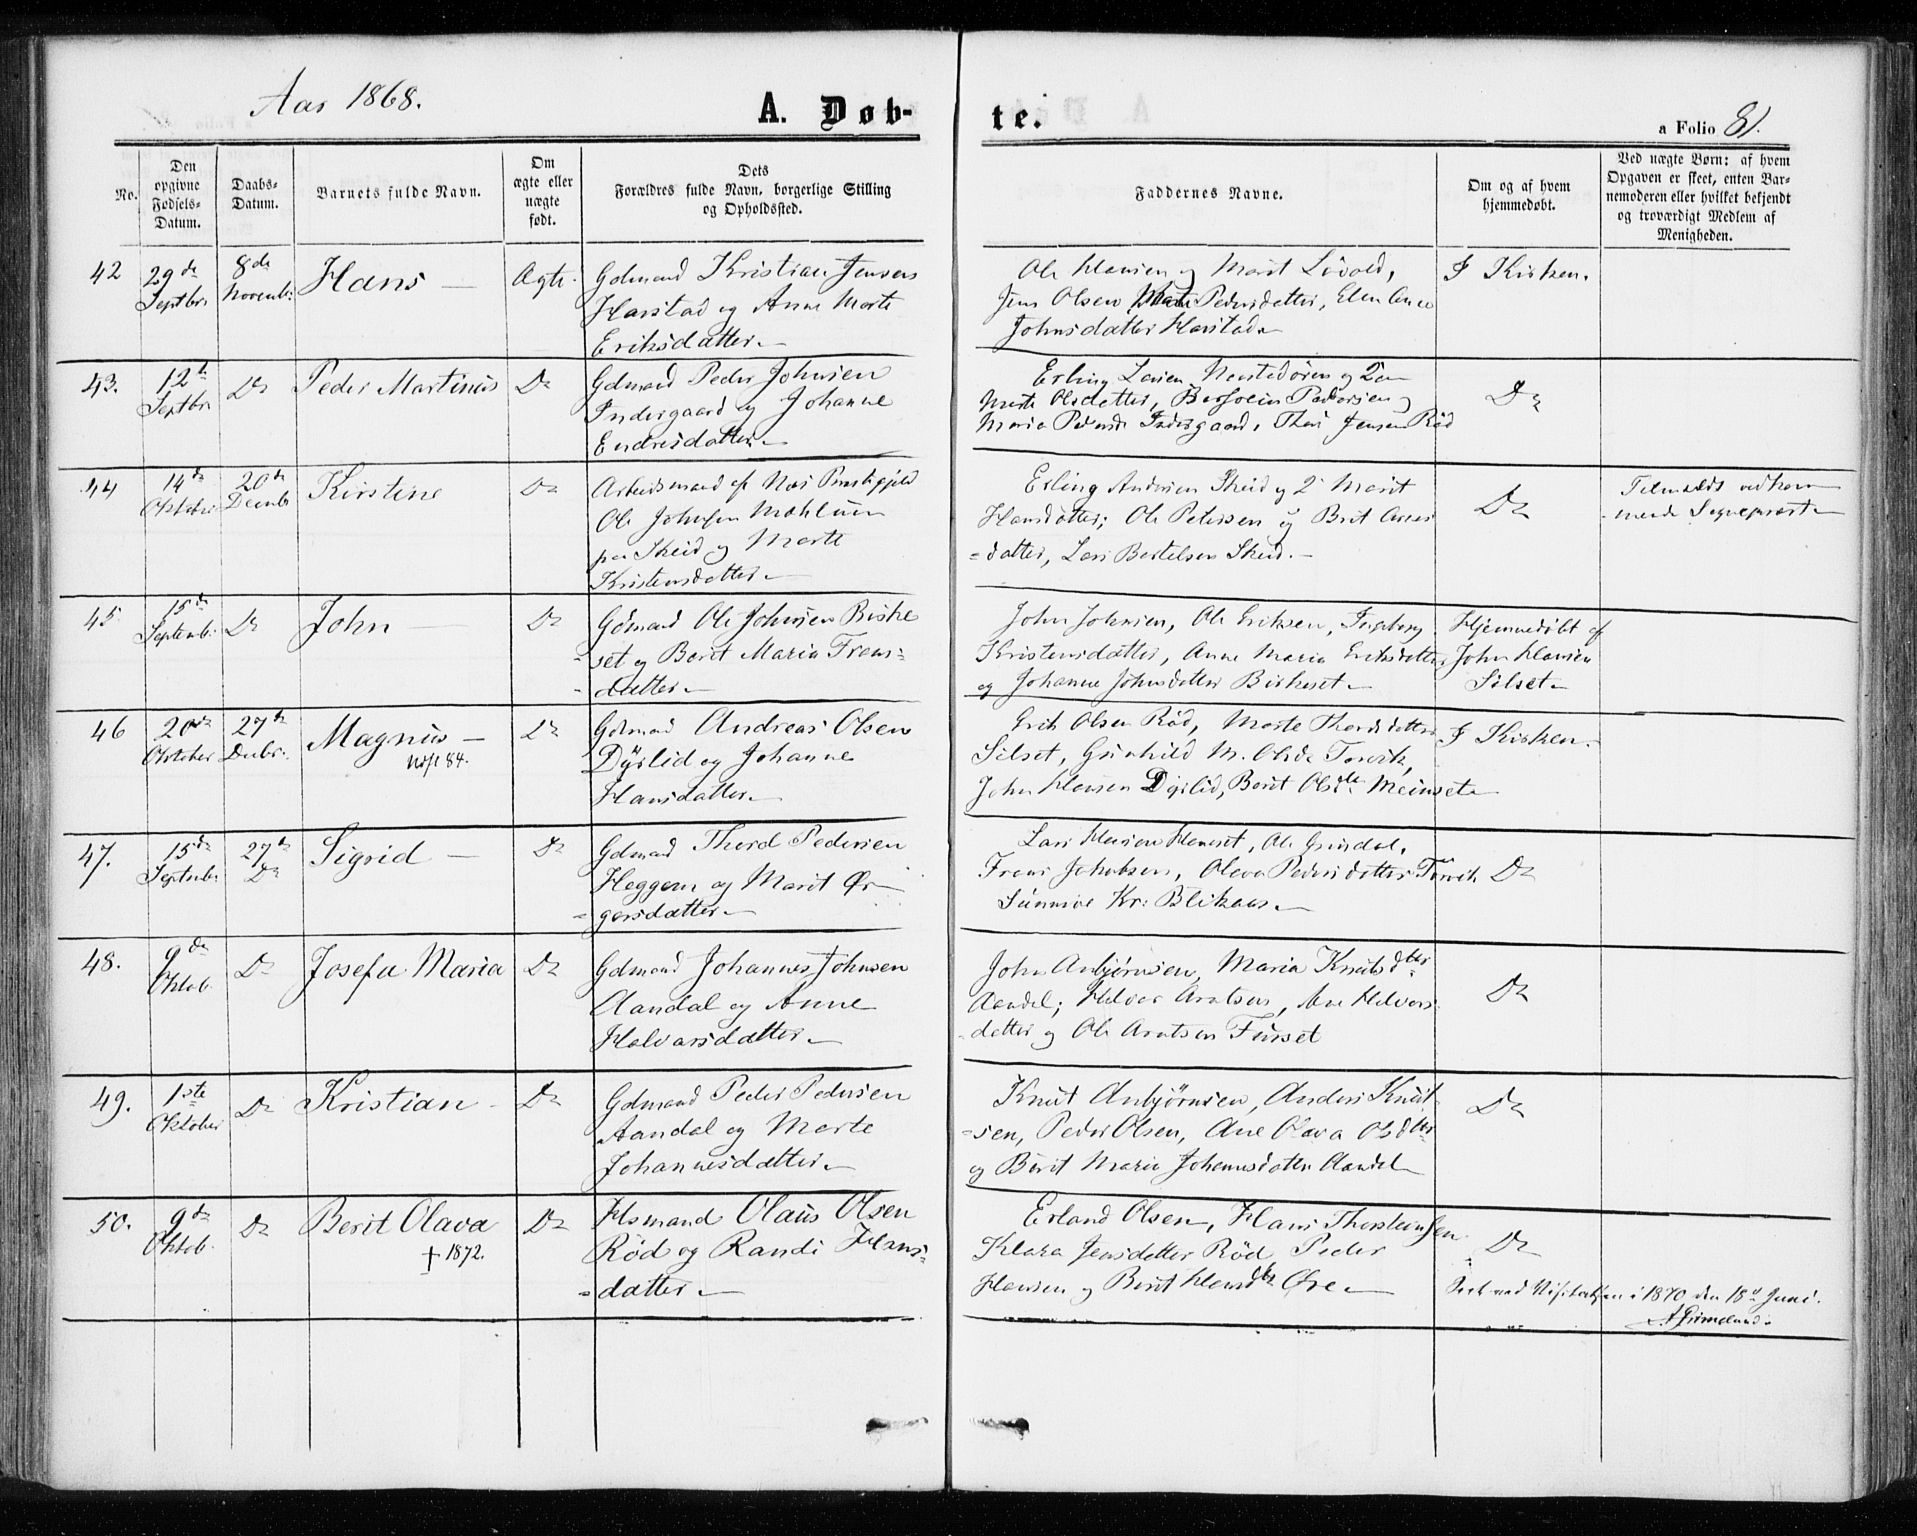 Aar 1868.
A. Døb-
te.
a Folio 81.
No.
Den opgivne Fødsels-Datum.
Daabs-Datum.
Barnets fulde Navn.
Om ægte eller uægte født.
Dets Forældres fulde Navn, borgerlige Stilling og Opholdssted.
Faddernes Navne.
Om og af hvem hjemmedøbt.
Ved uægte Børn: af hvem Opgaven er skeet, enten Bar-nemoderen eller hvilket bekjendt og troværdigt Medlem af Menigheden.
42
29de Septbr
8de Novemb:
Hans —
Ægte.
Gdmand Kristian Jensen
Harstad og Anne Marte
Eriksdatter
Ole Hansen og Marit Lövold,
Jens Olsen, Pedersdatter, Elen Anne
Johnsdatter Harstad
I Kirken.
43.
12te Septbr
Do
Peder Martinus
Do
Gdmand Peder Johnsen
Indergaard og Johanne
Endresdatter
Erling Larsen
Marte Olsdatter, Pedersen og
Maria Indergaard, Jensen Röd
Do
44
14de Oktober
20de Decemb
Kirstine
Do
Arbeidsmand af Næs Præstegjeld
Ole Johnsen Mæhlum
paa Skeid og Marte
Kristensdatter
Erling Andersen Skeid og Marit
Hansdatter; Ole Petersen og Brit Arne
=datter, Lars Bertelsen Skeid.
Do
Tilmeldt vedkom
mende Sogneprest
45
15de Septemb:
Do
John
Do
Gdmand Ole Johnsen Birke
set og Berit Maria Frens:
-datter
John Johnsen, Ole Eriksen, Ingeborg
Kristensdatter, Anne Maria Eriksdatter
og Johanne Johnsdatter Birkeset
Hjemmedöbt af
John Hansen
Silset
46
20de Oktober
27de Decbr.
Magnus —
84.
Do
Gdmand Andreas Olsen
Dyrlid og Johanne
Hansdatter
Erik Olsen Röd, Marte Thordsdatter
Silset, Gunhild M. Olsd. Torvik,
John Hansen Dyrlid, Berit Olsdtr Meinset
I Kirken.
47.
15de Septembr
27de Do
Sigrid —
Do
Gdmand Thord Pedersen
Heggem og Marit Ør
=gersdatter
Lars Hansen, Ole Grindal,
Frens Johnsen, Olava Pedersdatter Torvik
Kr: Blikaas
Do
48.
9de Oktob.
Do
Josefa Maria
Do
Gdmand Johannes Johnsen
Aandal og Anne
Halvarsdatter
John Anbjørnsen, Maria Knutsdtter
Aandal; Halvar Arntsen, Ane Halvars
datter og Ole Arntsen Furset
Do
49.
1ste Oktober
Do
Kristian
Do
Gdmand Peder Pedersen
Aandal og Marte
Johannesdatter
Knut Anbjørnsen, Anders Knut
=sen, Peder Olsen, Ane Olava Olsdtter
og Berit Maria Johannesdatter Aandal
Do
50.
9de Oktob.
Do
Berit Olava
† 1872.
Do
Hsmand Olaus Olsen
Röd og Randi Hans
=datter
Erland Olsen, Hans Thorsteinsen
Klara Jensdatter Röd Peder
Hansen og Berit Hansdtr Øre
Do
Seet ved Visitatsen i 1870 den 18de Juni.
A Grimelund